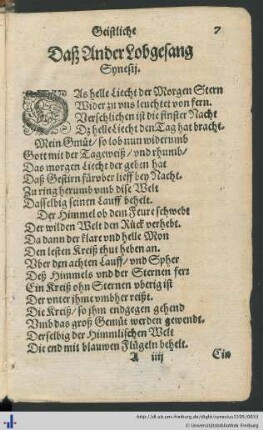 Geistliche 7
Daß Ander Lobgesang
Synesij.
DAs helle Liecht der Morgen Stern
Wider zu vns leuchtet von fern.
Verschlichen ist die finster Nacht
Dz helle Liecht den Tag hat bracht.
Mein Gmüt/ so lob nun widerumb
Gott mit der Tageweiß/ vnd rhumb/
Das morgen liecht der geben hat
Daß Gestirn fürvber lieff bey Nacht.
Zu ring herumb vmb dise Welt
Dasselbig seinen Lauff behelt.
Der Himmel ob dem Feure schwebt
Der wilden Welt den Rück verhebt.
Da dann der klare vnd helle Mon
Den lesten Kreiß thut heben an.
Vber den achten Lauff/ vnd Spher
Deß Himmels vnd der Sternen ferr
Ein Kreiß ohn Sternen vberig ist
Der vnter jhme vmbher reißt.
Die Kreiß/ so jhm endgegen gehend
Vmb das groß Gemüt werden gewendt.
Derselbig der Himmlischen Welt
Die end mit blauwen Flügeln behelt.
A iiij Ein
http://dl.ub.uni-freiburg.de/diglit/synesius1595/0033
© Universitätsbibliothek Freiburg